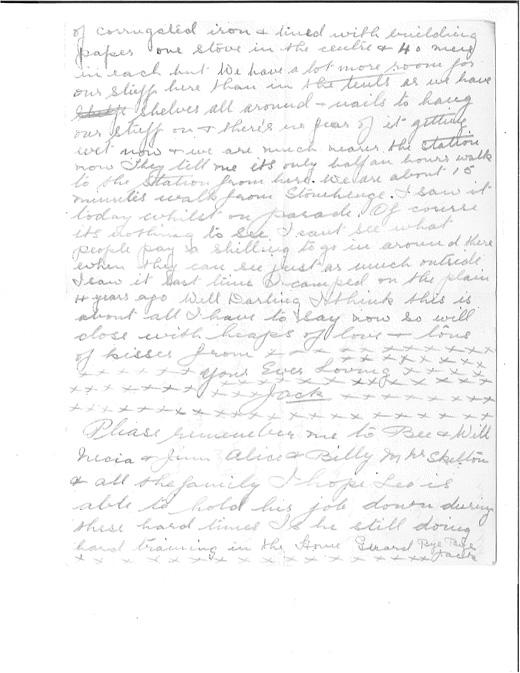 of corrugated iron & lined with building
paper one stove in the centre & 40 men
in each but We have a lot more room for
our stuff here than in the tents as we have
shelves all around & nails to hang
our stuff on & there's no fear of it getting
wet now & we are much nearer the station
now They tell me its only half an hours walk
to the Station from here. We are about 15
minutes walk from Stonehenge. I saw it
today whilst on parade. Of course
its nothing to see I cant see what
people pay a shilling to go in around there
when they can see just as much outside
I saw it last time I camped on the plain
4 years ago Well Darling I think this is
about all I have to say now so will
close with heaps of love & tons
of kisses from x x x x x x x x x
x x x x x x Your Ever Loving x x x x x
x x x x x x x x x x Jack x x x x x x x x
x x x x x x x x x x x x x x x x x x x
Please remember me to Bee & Will
& Jim Alice & Billy Mrs Skelton
& all the family I hope Leo is
able to hold his job down during
these hard times Is he still doing
hard training in the Home Guard Bye Bye
Jack
x x x x x x x x x x x x x x x x x x x